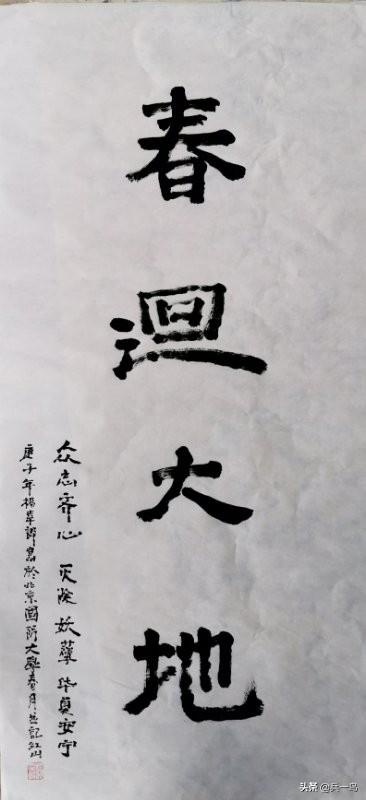 春迴大地
众志齐心 灭疫妖孽 华夏安宁
庚子年杨 於北京国防大学春月 记红山
头条 @兵一鸟